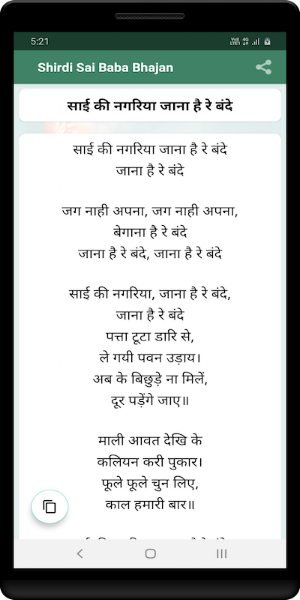 5:21
Shirdi Sai Baba Bhajan
साई की नगरिया जाना है रे बंदे
साई की नगरिया जाना है रे बंदे
जाना है रे बंदे
जग नाही अपना, जग नाही अपना,
बेगाना है रे बंदे
जाना है रे बंदे, जाना है रे बंदे
साई की नगरिया, जाना है रे बंदे,
जाना है रे बंदे
पत्ता टूटा डारि से,
ले गयी पवन उड़ाय।
अब के बिछुड़े ना मिलें,
दूर पड़ेंगे जाए॥
माली आवत देखि के
कलियन करी पुकार।
फूले फूले चुन लिए,
काल हमारी बार॥